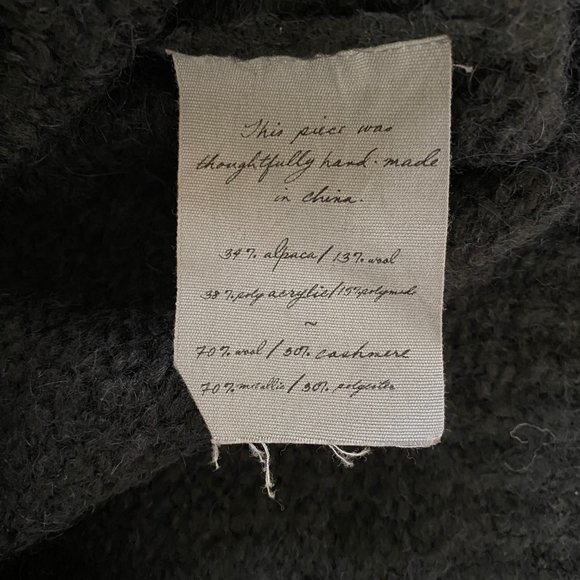 This piece was
thoughtfully hand-made
in china.
34% alpaca / 13% wool
38% poly acrylic / 15% polymide
~
70% wool / 30% cashmere
70% metallic / 30% polyester